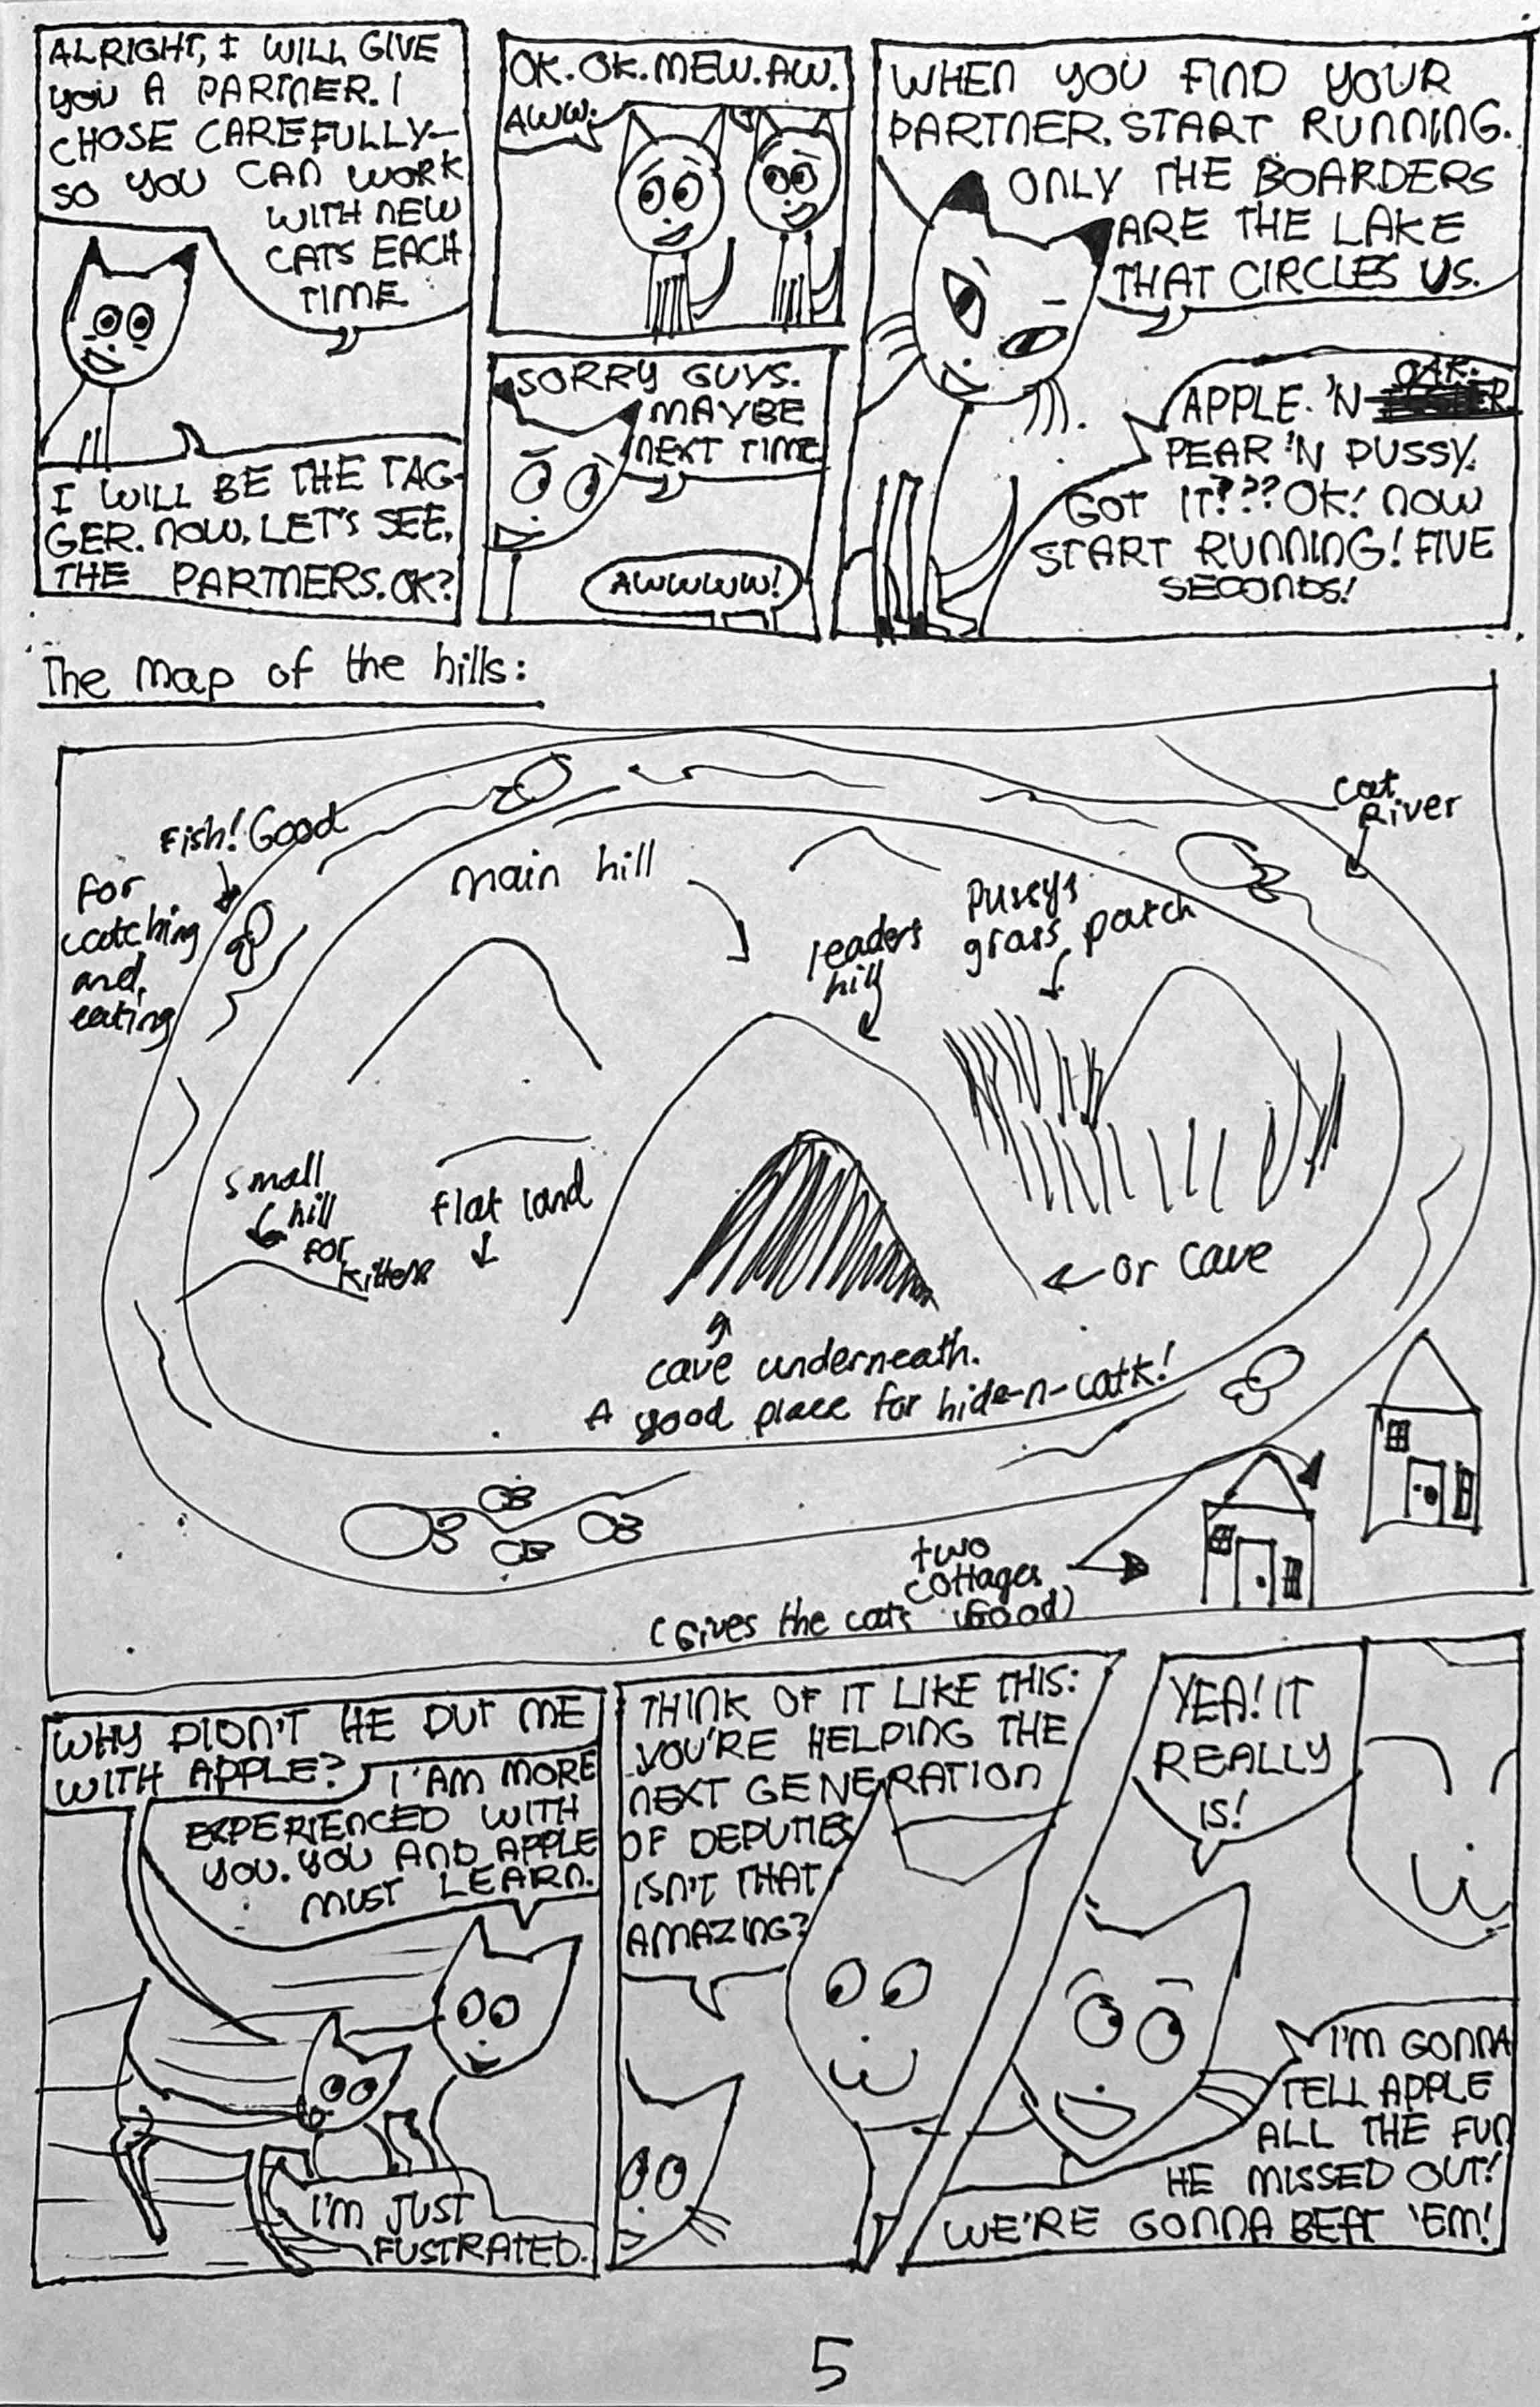 ALRIGHT, I WILL GIVE
YOU A PARTNER. I
CHOSE CAREFULLY—
SO YOU CAN WORK
WITH NEW
CATS EACH
TIME.
I WILL BE THE TAG-
GER. NOW, LET'S SEE,
THE PARTNERS. OK?
OK. OK. MEW. AW.
AWW.
SORRY GUYS.
MAYBE
NEXT TIME
AWWWW!
WHEN YOU FIND YOUR
PARTNER. START RUNNING.
ONLY THE BOARDERS
ARE THE LAKE
THAT CIRCLES US.
OAK.
APPLE. 'N
PEAR 'N PUSSY.
GOT IT??? OK! NOW
START RUNNING! FIVE
SECONDS!
The Map of the hills:
Fish! Good
for
catching
and,
eating
main hill
leaders
hill
Pussys
grass patch
Cat
River
small
hill
for
kittens
flat land
or cave
cave underneath.
A good place for hide-n-catk!
two
cottages
(Gives the cats food)
WHY DIDN'T HE PUT ME
WITH APPLE?
I'AM MORE
EXPERIENCED WITH
YOU. YOU AND APPLE
MUST LEARN.
I'M JUST
FUSTRATED.
THINK OF IT LIKE THIS:
YOU'RE HELPING THE
NEXT GENERATION
OF DEPUTIES
ISN'T THAT
AMAZING?
YEA! IT
REALLY
IS!
I'M GONNA
TELL APPLE
ALL THE FUN
HE MISSED OUT!
WE'RE GONNA BEAT 'EM!
5